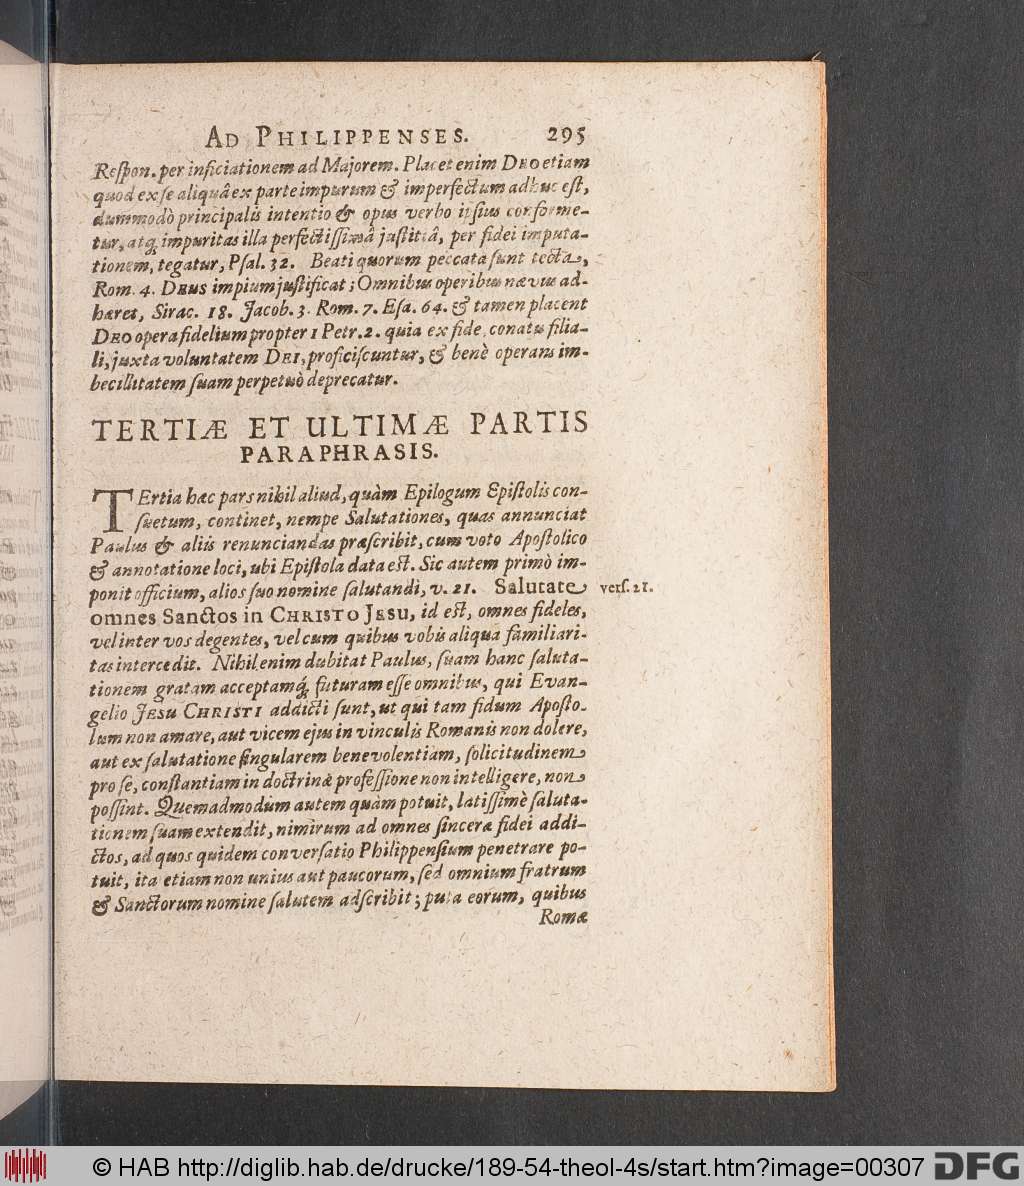 AD PHILIPPENSES. 295
Reſpon. per inficiationem ad Majorem. Placet enim DEO etiam
quod ex ſe aliquâ ex parte impurum & imperfectum adhuc eſt,
dummodò principalis intentio & opus verbo ipſius conforme-
tur, atq; impuritas illa perfectiſſimâ juſtitiâ, per fidei imputa-
tionem, tegatur, Pſal. 32. Beati quorum peccata ſunt tecta,
Rom. 4. DEUS impium juſtificat; Omnibus operibus nævus ad-
hæret, Sirac. 18. Jacob. 3. Rom. 7. Eſa. 64. & tamen placent
DEO opera fidelium propter 1 Petr. 2. quia ex fide, conatu filia-
li, juxta voluntatem DEI, proficiſcuntur, & benè operans im-
becillitatem ſuam perpetuò deprecatur.
TERTIÆ ET ULTIMÆ PARTIS
PARAPHRASIS.
TErtia hæc pars nihil aliud, quàm Epilogum Epiſtolis con-
ſuetum, continet, nempe Salutationes, quas annunciat
Paulus & aliis renunciandas præſcribit, cum voto Apoſtolico
& annotatione loci, ubi Epiſtola data eſt. Sic autem primò im-
ponit officium, alios ſuo nomine ſalutandi, v. 21. Salutate verſ. 21.
omnes Sanctos in CHRISTO JESU, id eſt, omnes fideles,
vel inter vos degentes, vel cum quibus vobis aliqua familiari-
tas intercedit. Nihil enim dubitat Paulus, ſuam hanc ſaluta-
tionem gratam acceptamq́; futuram eſſe omnibus, qui Evan-
gelio JESU CHRISTI addicti ſunt, ut qui tam fidum Apoſto-
lum non amare, aut vicem ejus in vinculis Romanis non dolere,
aut ex ſalutatione ſingularem benevolentiam, ſolicitudinem
pro ſe, conſtantiam in doctrinæ profeſſione non intelligere, non
poſſint. Quemadmodum autem quàm potuit, latiſſimè ſaluta-
tionem ſuam extendit, nimirum ad omnes ſinceræ fidei addi-
ctos, ad quos quidem converſatio Philippenſium penetrare po-
tuit, ita etiam non unius aut paucorum, ſed omnium fratrum
& Sanctorum nomine ſalutem adſcribit; puta eorum, quibus
Romæ
© HAB http://diglib.hab.de/drucke/189-54-theol-4s/start.htm?image=00307 DFG